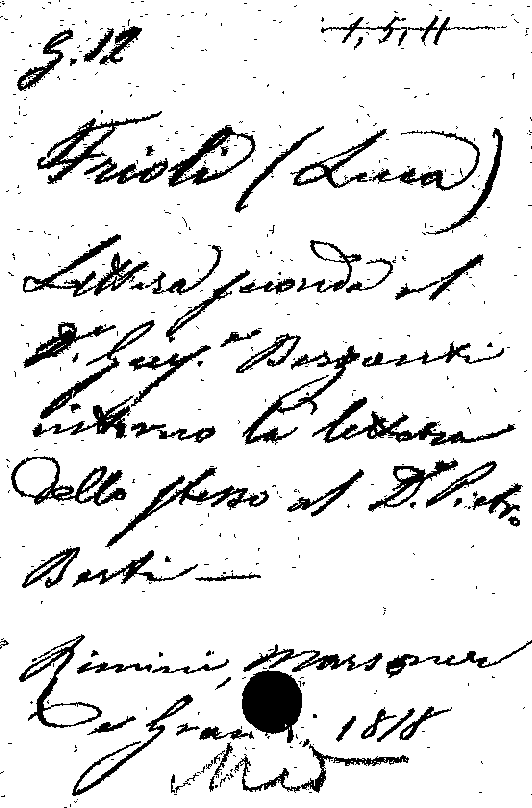 G.12
1, 5, 11
Frioli (Luca)
Lettera seconda al
D.r Gius.e Bergonzi
intorno la lettera
dello stesso al D.r Pietro
Berti —
Rimini, Marsoner
e Grandi. 1818